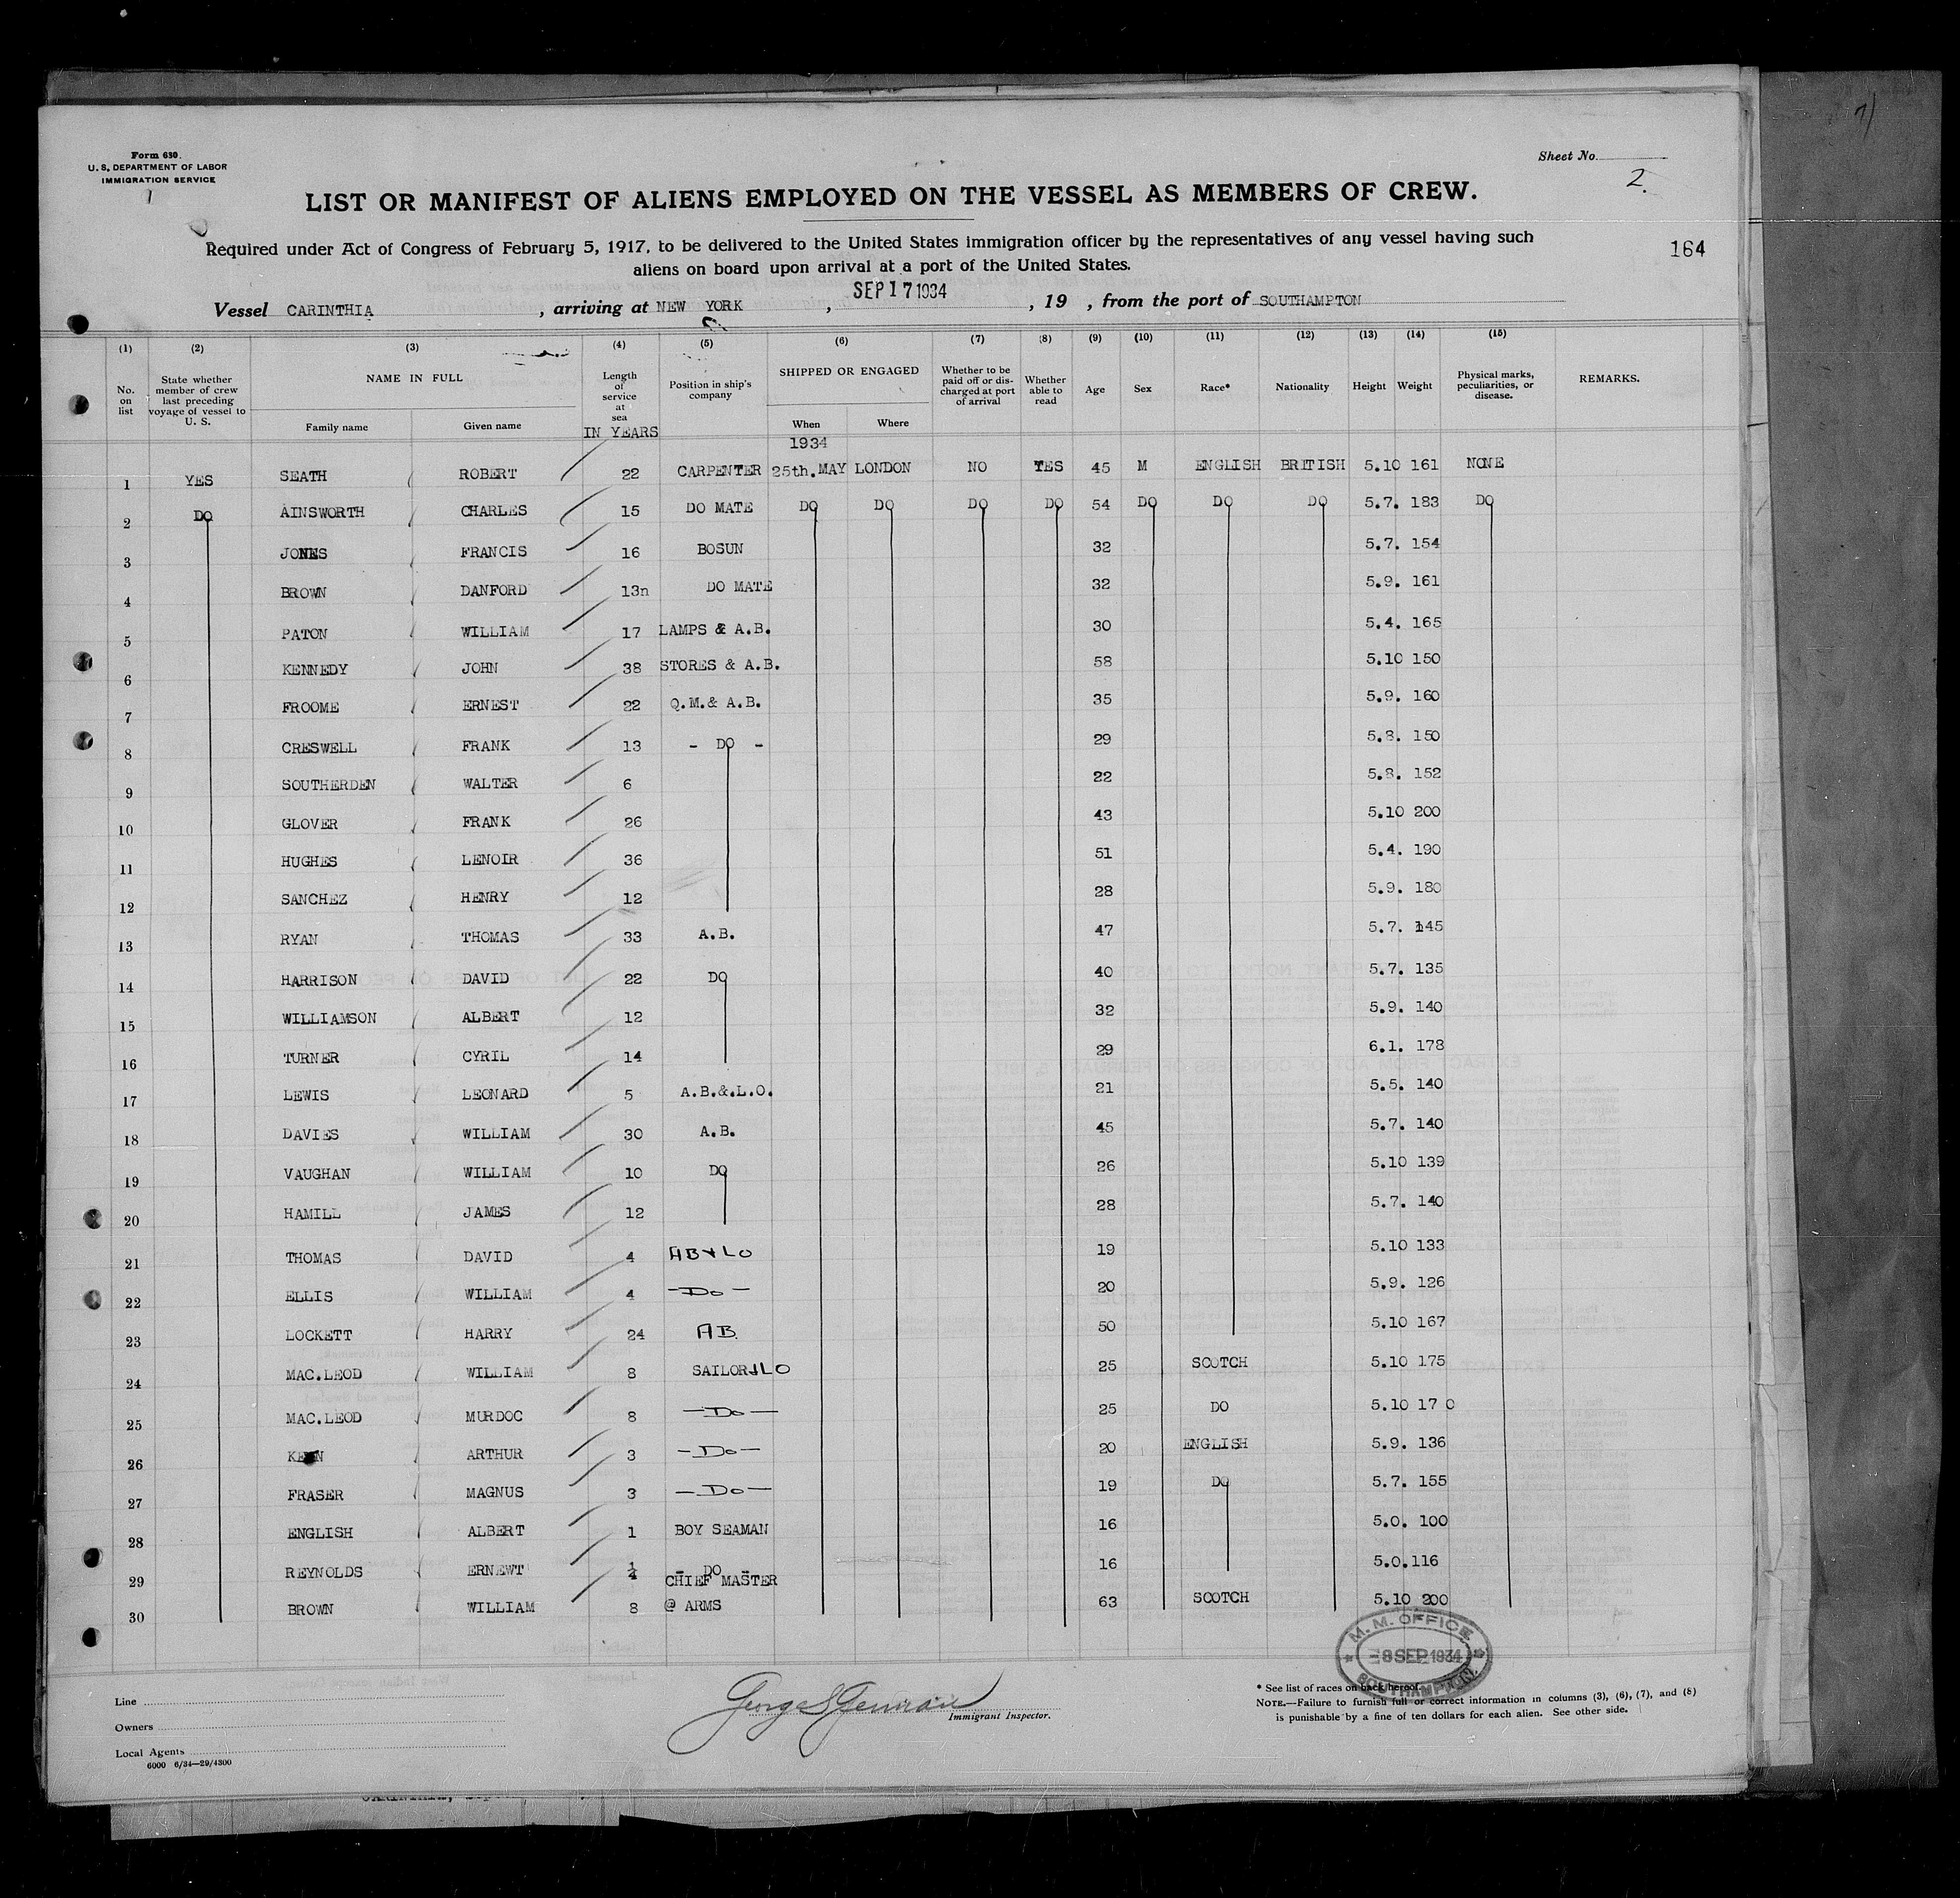 Form 630.
U. S. DEPARTMENT OF LABOR
IMMIGRATION SERVICE
Sheet No.
2.
LIST OR MANIFEST OF ALIENS EMPLOYED ON THE VESSEL AS MEMBERS OF CREW.
Required under Act of Congress of February 5, 1917, to be delivered to the United States immigration officer by the representatives of any vessel having such
aliens on board upon arrival at a port of the United States.
164
Vessel CARINTHIA, arriving at NEW YORK, SEP 17 1934, 19 , from the port of SOUTHAMPTON
(1) (2) (3) (4) (5) (6) (7) (8) (9) (10) (11) (12) (13) (14) (15)
No. on list State whether member of crew last preceding voyage of vessel to U. S. NAME IN FULL Family name Given name Length of service at sea IN YEARS Position in ship's company SHIPPED OR ENGAGED When Where Whether to be paid off or discharged at port of arrival Whether able to read Age Sex Race* Nationality Height Weight Physical marks, peculiarities, or disease. REMARKS.
1934
1 YES SEATH ROBERT 22 CARPENTER 25th.MAY LONDON NO YES 45 M ENGLISH BRITISH 5.10 161 NONE
2 DO AINSWORTH CHARLES 15 DO MATE DO DO DO DO 54 DO DO DO 5.7. 183 DO
3 JONES FRANCIS 16 BOSUN 32 5.7. 154
4 BROWN DANFORD 13n DO MATE 32 5.9. 161
5 PATON WILLIAM 17 LAMPS & A.B. 30 5.4. 165
6 KENNEDY JOHN 38 STORES & A.B. 58 5.10 150
7 FROOME ERNEST 22 Q.M.& A.B. 35 5.9. 160
8 CRESWELL FRANK 13 - DO - 29 5.8. 150
9 SOUTHERDEN WALTER 6 22 5.8. 152
10 GLOVER FRANK 26 43 5.10 200
11 HUGHES LENOIR 36 51 5.4. 190
12 SANCHEZ HENRY 12 28 5.9. 180
13 RYAN THOMAS 33 A.B. 47 5.7. 145
14 HARRISON DAVID 22 DO 40 5.7. 135
15 WILLIAMSON ALBERT 12 32 5.9. 140
16 TURNER CYRIL 14 29 6.1. 178
17 LEWIS LEONARD 5 A.B.&.L.O. 21 5.5. 140
18 DAVIES WILLIAM 30 A.B. 45 5.7. 140
19 VAUGHAN WILLIAM 10 DO 26 5.10 139
20 HAMILL JAMES 12 28 5.7. 140
21 THOMAS DAVID 4 AB & LO 19 5.10 133
22 ELLIS WILLIAM 4 - Do - 20 5.9. 126
23 LOCKETT HARRY 24 AB 50 5.10 167
24 MAC.LEOD WILLIAM 8 SAILOR & LO 25 SCOTCH 5.10 175
25 MAC.LEOD MURDOC 8 - Do - 25 DO 5.10 17 0
26 ARTHUR 3 - Do - 20 ENGLISH 5.9. 136
27 FRASER MAGNUS 3 - Do - 19 DO 5.7. 155
28 ENGLISH ALBERT 1 BOY SEAMAN 16 5.0. 100
29 REYNOLDS ERNEWT DO 16 5.0.116
30 BROWN WILLIAM 8 CHIEF MASTER @ ARMS 63 SCOTCH 5.10 200
M.M. OFFICE
8 SEP 1934
SOUTHAMPTON
Line
Owners
Local Agents
6000 6/34—29/4300
Immigrant Inspector.
* See list of races on back hereof.
NOTE.—Failure to furnish full or correct information in columns (3), (6), (7), and (8)
is punishable by a fine of ten dollars for each alien. See other side.